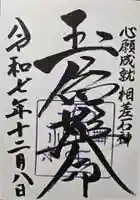 心願成就 相差石神
玉依姫命
令和七年十二月八日